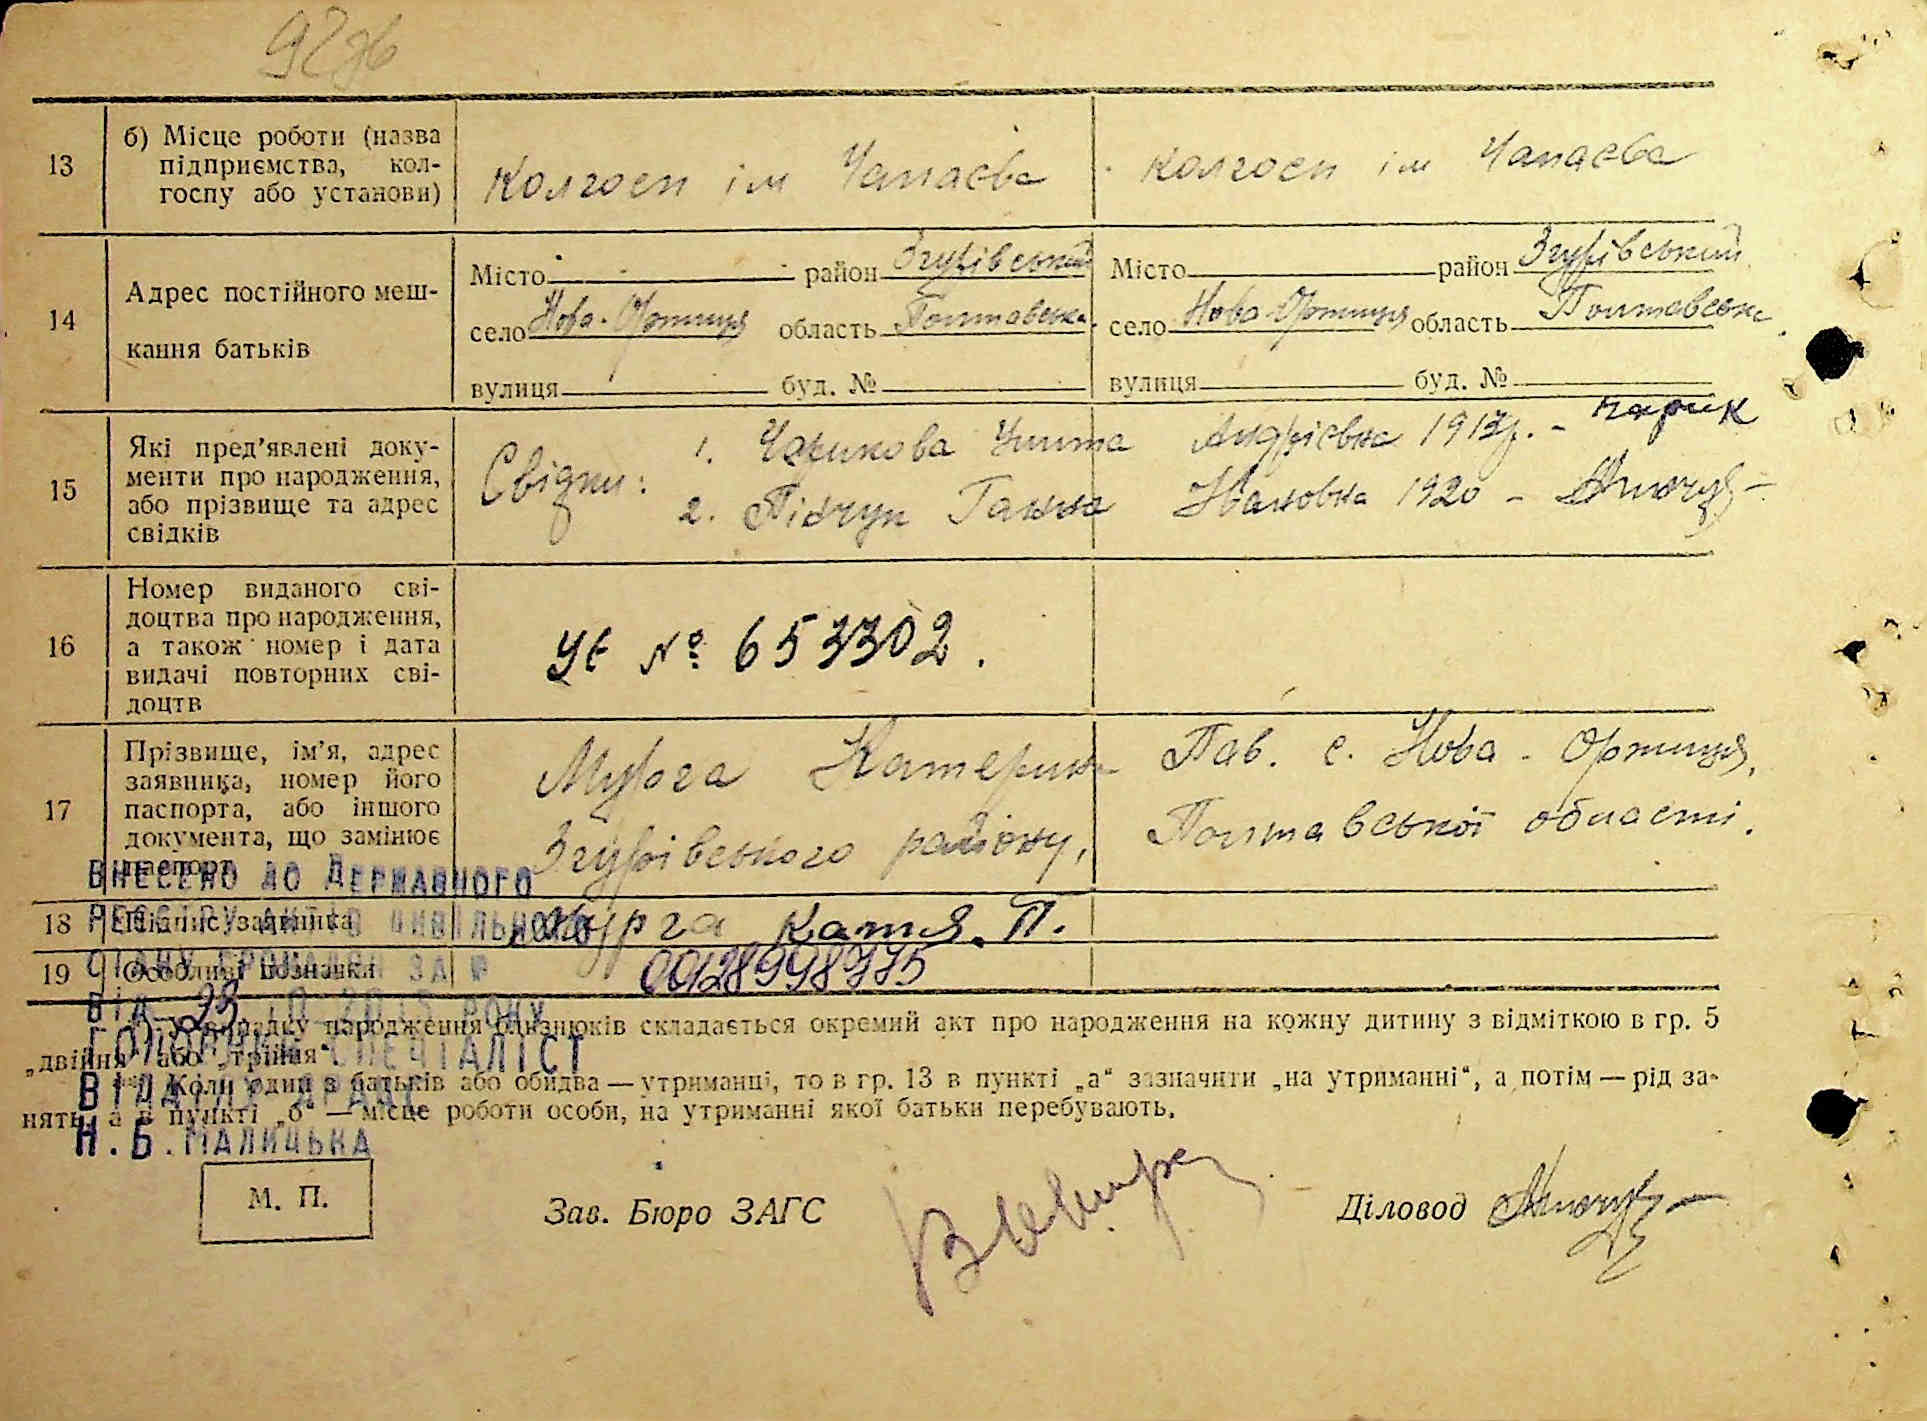 92зв
13 б) Місце роботи (назва
підприємства, кол-
госпу або установи)
Колгосп ім Чапаєва
колгосп ім Чапаєва
14 Адрес постійного меш-
кання батьків
Місто район Згурівський
село Нова-Оржиця область Полтавська
вулиця буд. №
Місто район Згурівський
село Нова-Оржиця область Полтавська
вулиця буд. №
15 Які пред’явлені доку-
менти про народження,
або прізвище та адрес
свідків
Свідки: 1. Андрієвна
2. Ганна Івановна 1920 -
16 Номер виданого сві-
доцтва про народження,
а також номер і дата
видачі повторних сві-
доцтв
№ 653302.
17 Прізвище, ім’я, адрес
заявника, номер його
паспорта, або іншого
документа, що замінює
паспорт
Катерина Пав. с. Нова-Оржиця,
Згурівського району, Полтавської області.
18 Підпис заявника
Катя. П.
19 Особливі познавки
00128998975
ВНЕСЕНО ДО ДЕРЖАВНОГО
РЕЄСТРУ АКТІВ ЦИВІЛЬНОГО
СТАНУ ГРОМАДЯН ЗА №
ВІД 23 РОКУ
ГОЛОВНИЙ СПЕЦІАЛІСТ
ВІДДІЛУ ДРАЦС
Н.Б.МАЛИЦЬКА
*) У випадку народження близнюків складається окремий акт про народження на кожну дитину з відміткою в гр. 5
„двійня“ або „трійня“
**) Коли один з батьків або обидва — утриманці, то в гр. 13 в пункті „а“ зазначити „на утриманні“, а потім — рід за-
нять, а в пункті „б“ — місце роботи особи, на утриманні якої батьки перебувають.
М. П.
Зав. Бюро ЗАГС
Діловод